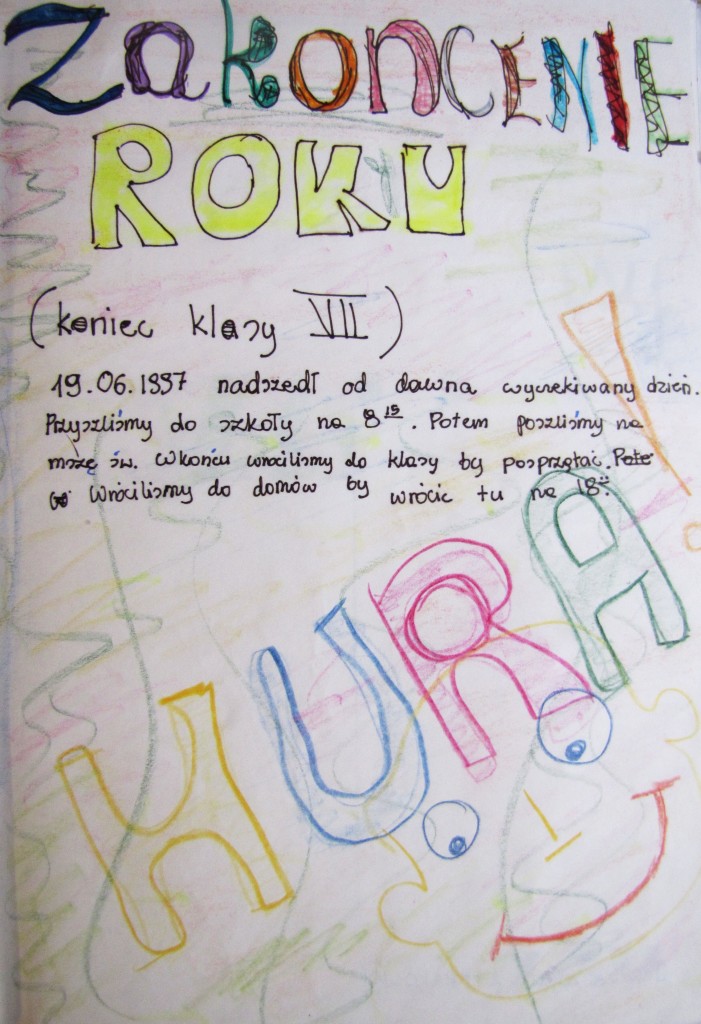 ZakoncENIE
ROKU
(koniec klasy VII)
19.06.1997 nadszedł od dawna wyczekiwany dzień.
Przyszliśmy do szkoły na 8 15. Potem poszliśmy na
mszę św. Wkońcu wróciliśmy do klasy by posprzątać.
Wróciliśmy do domów by wrócic tu na 18
HURA!